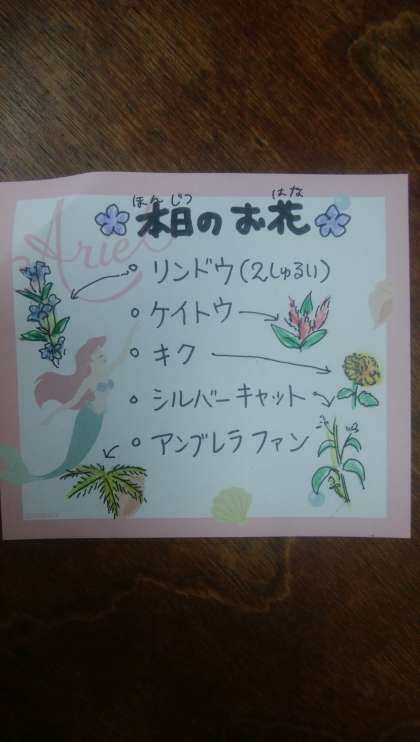 Ariel
ほんじつ はな
本日のお花
リンドウ(2しゅるい)
ケイトウ
キク
シルバーキャット
アンブレラファン